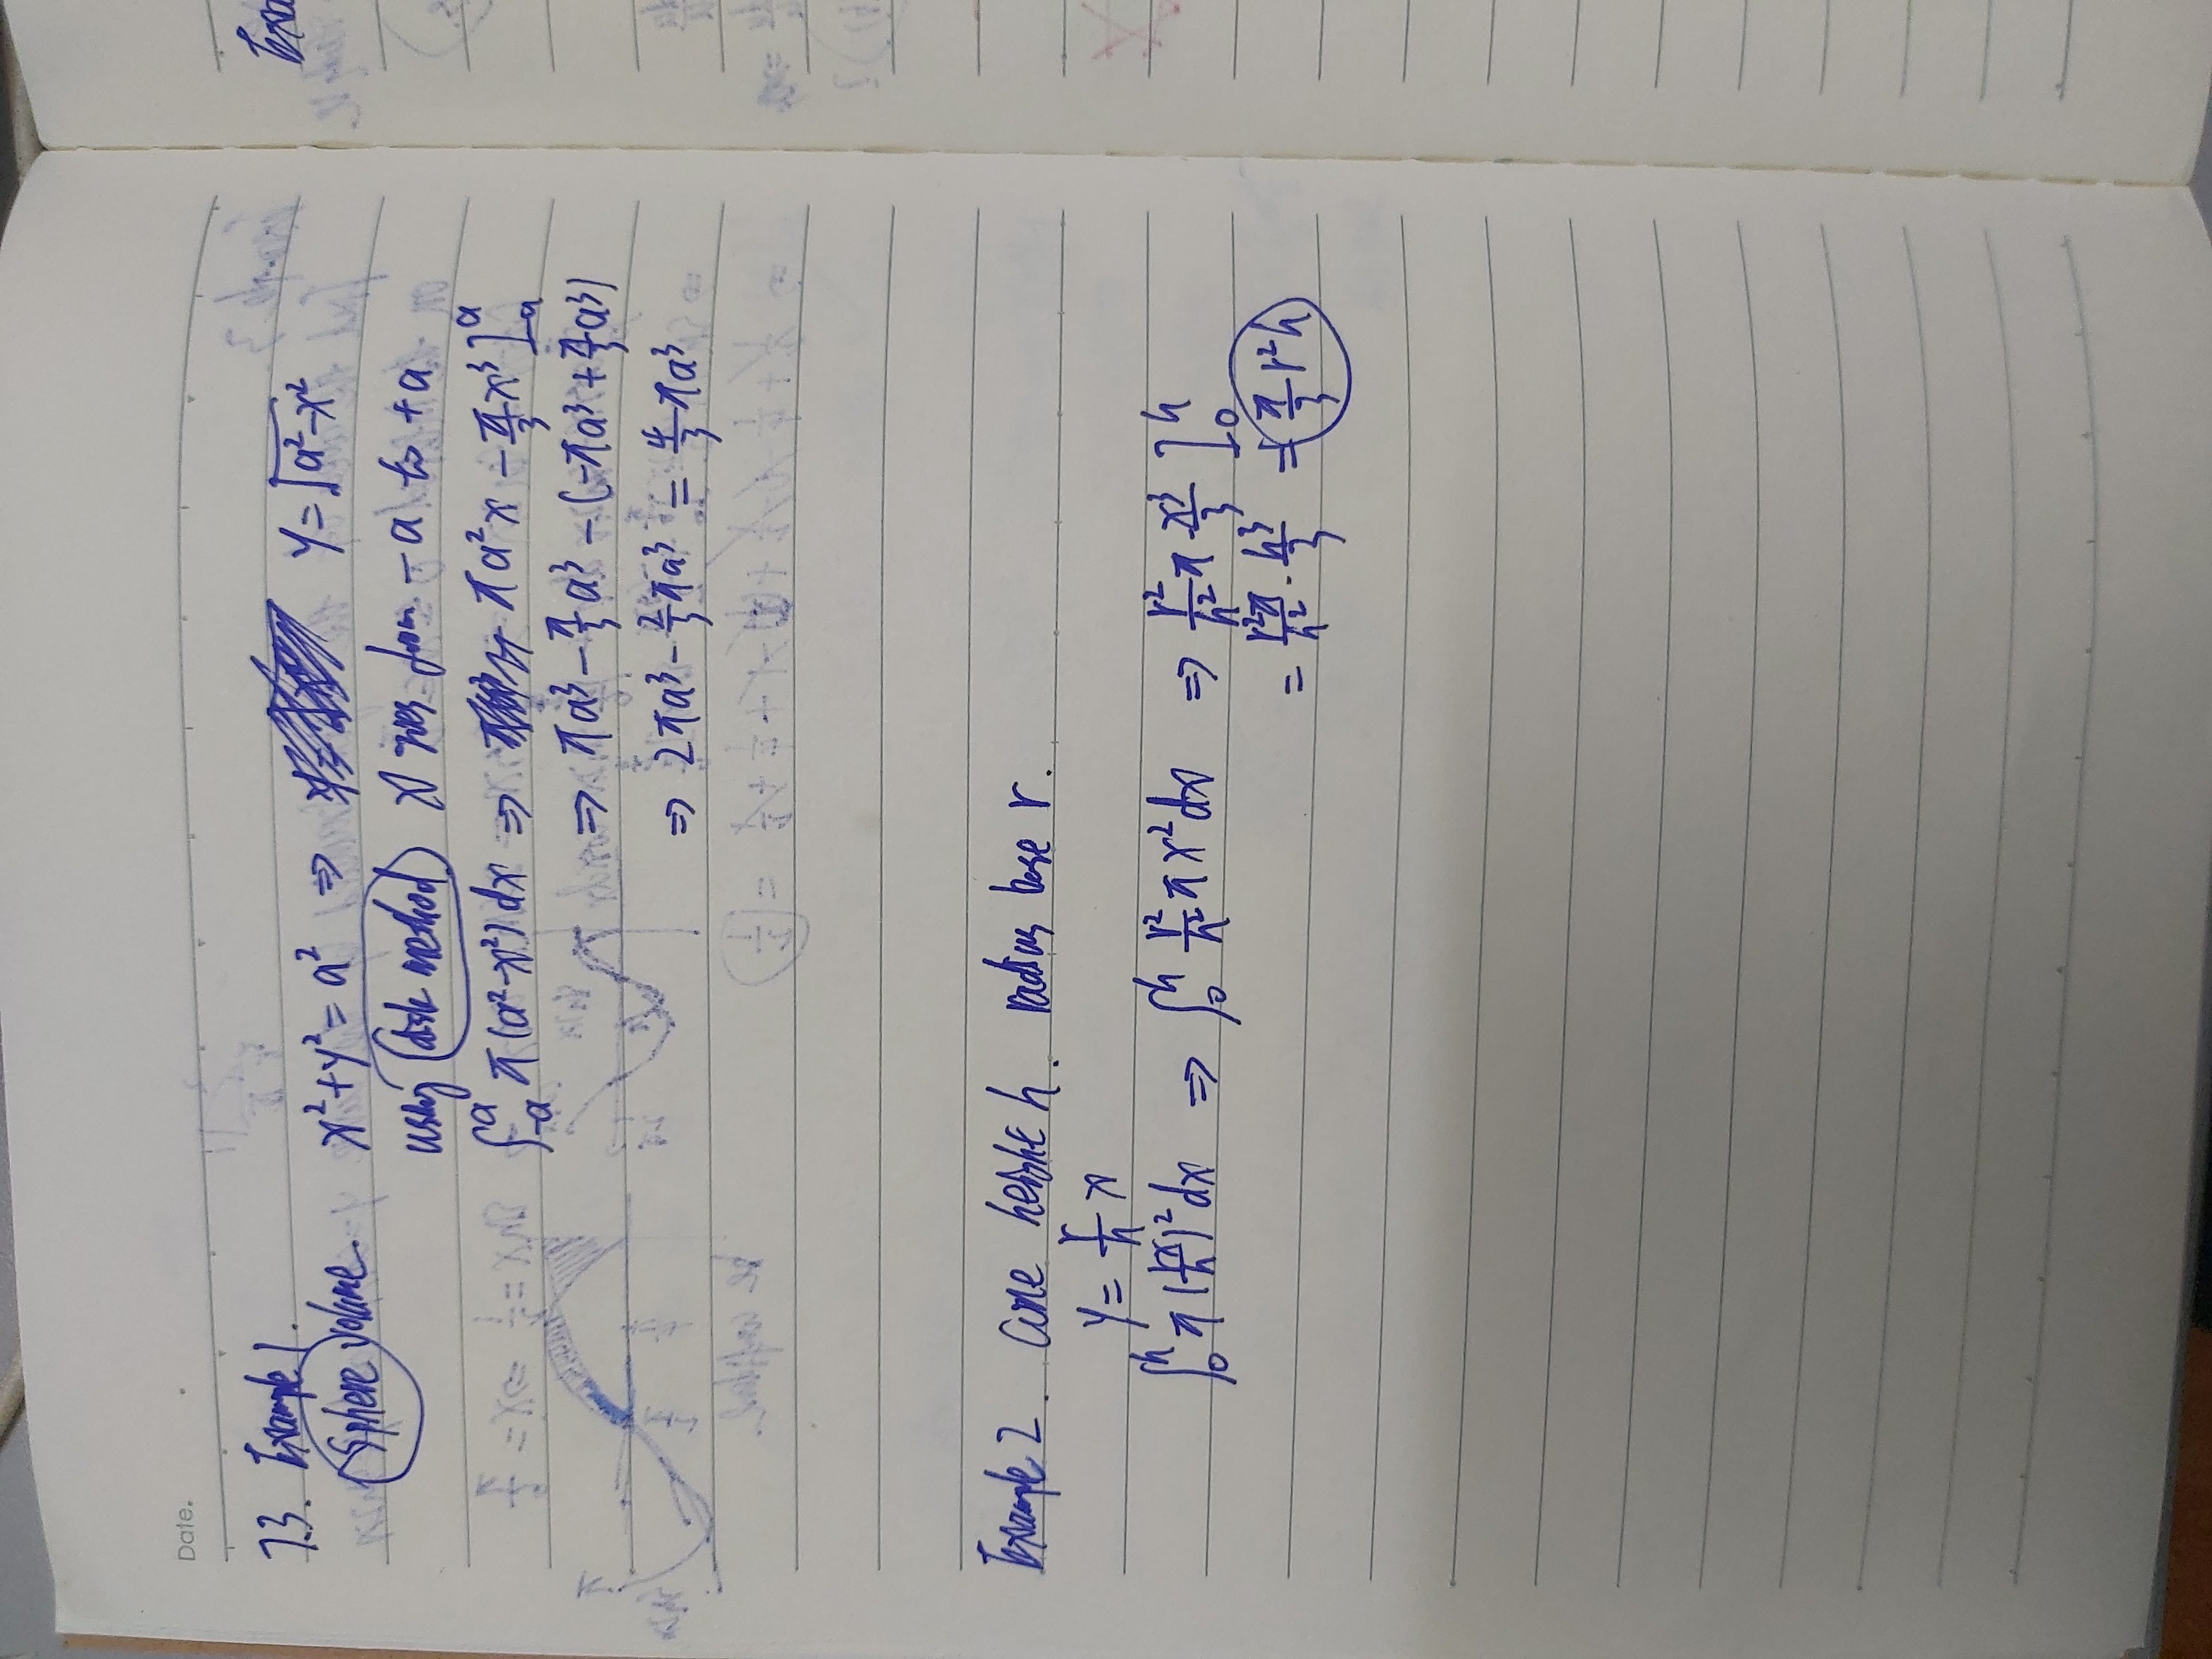 Date.
7.3. Example 1.
Sphere volume. x² + y² = a² ⇒ y = √(a² - x²)
using disk method x goes from -a to +a
∫₋ₐᵃ π(a² - x²) dx ⇒ πa²x - π/3 x³ ]₋ₐᵃ
⇒ πa³ - π/3 a³ - (-πa³ + π/3 a³)
⇒ 2πa³ - 2/3 πa³ = 4/3 πa³
Example 2. Cone height h. radius base r.
y = r/h x
∫₀ʰ π(rx/h)² dx ⇒ ∫₀ʰ r²/h² πx² dx ⇒ r²/h² π x³/3 ]₀ʰ
= r²π/h² · h³/3 = π/3 r²h